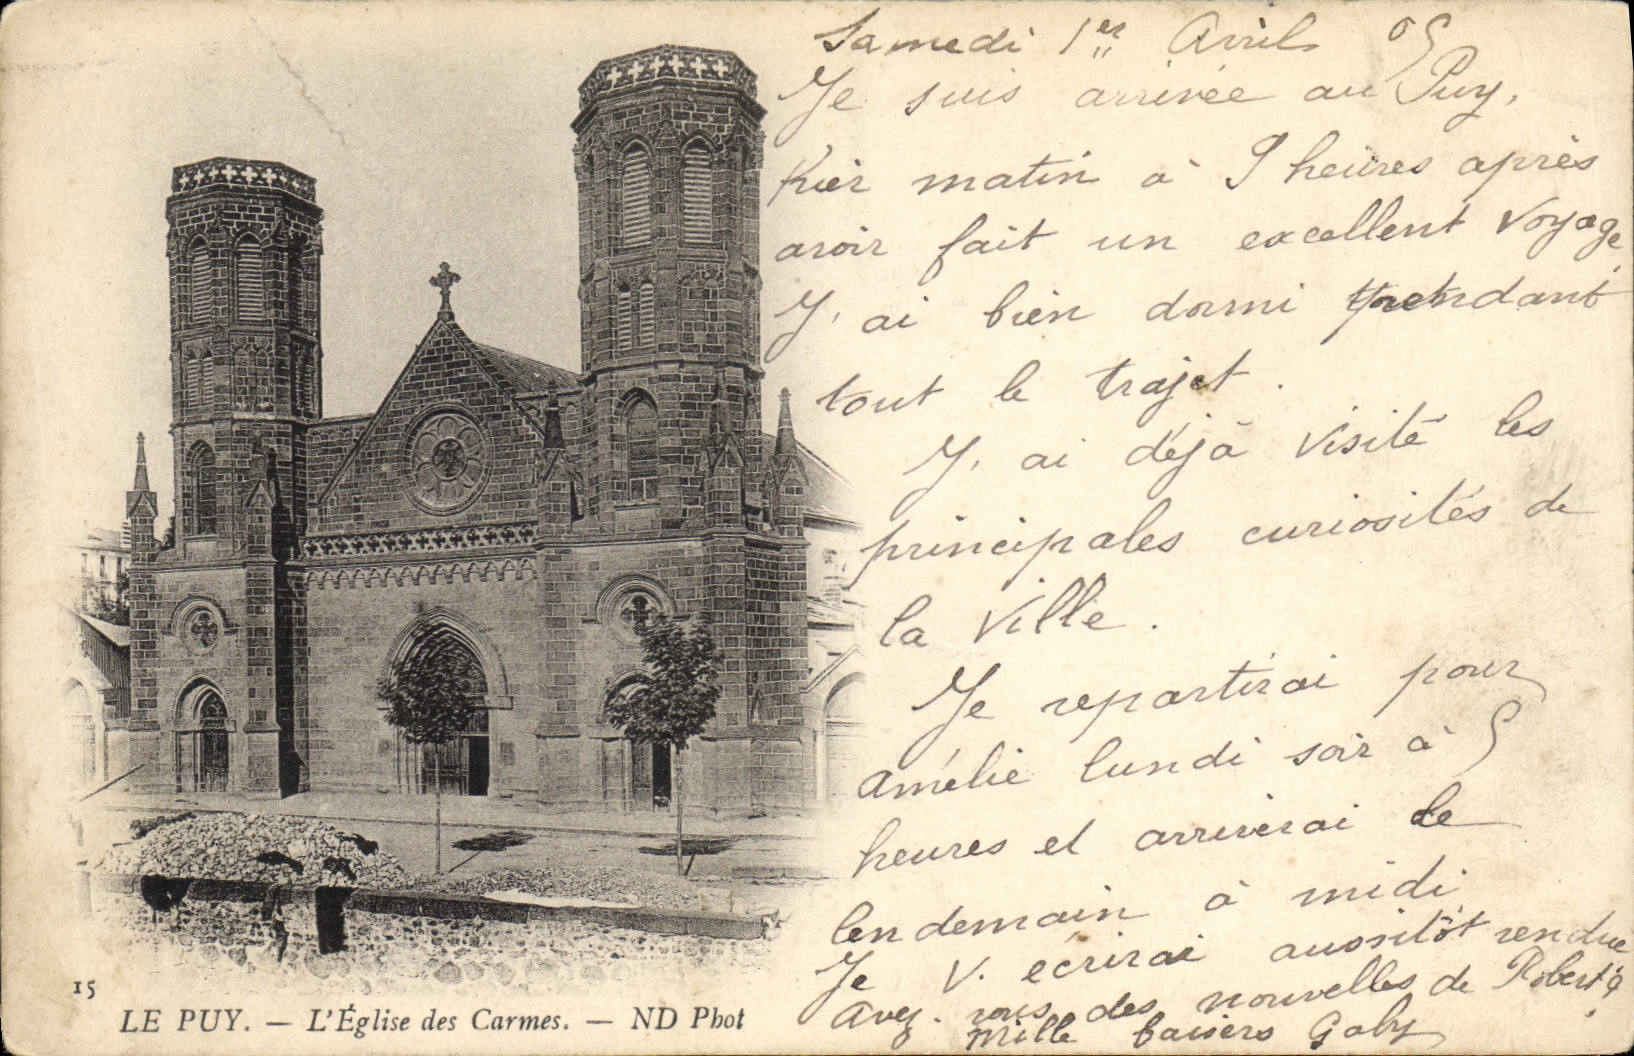 Samedi 1er Avril 05
Je suis arrivée au Puy,
hier matin à 9 heures après
avoir fait un excellent voyage,
J'ai bien dormi pendant
tout le trajet.
J'ai déjà visité les
principales curiosités de
la Ville.
Je repartirai pour
Amélie lundi soir à 9
heures et arriverai le
lendemain à midi
Je v. écrirai aussitôt rendue
Avez-vous des nouvelles de Robert?
Mille baisers Gaby
15
LE PUY. — L'Église des Carmes. — ND Phot